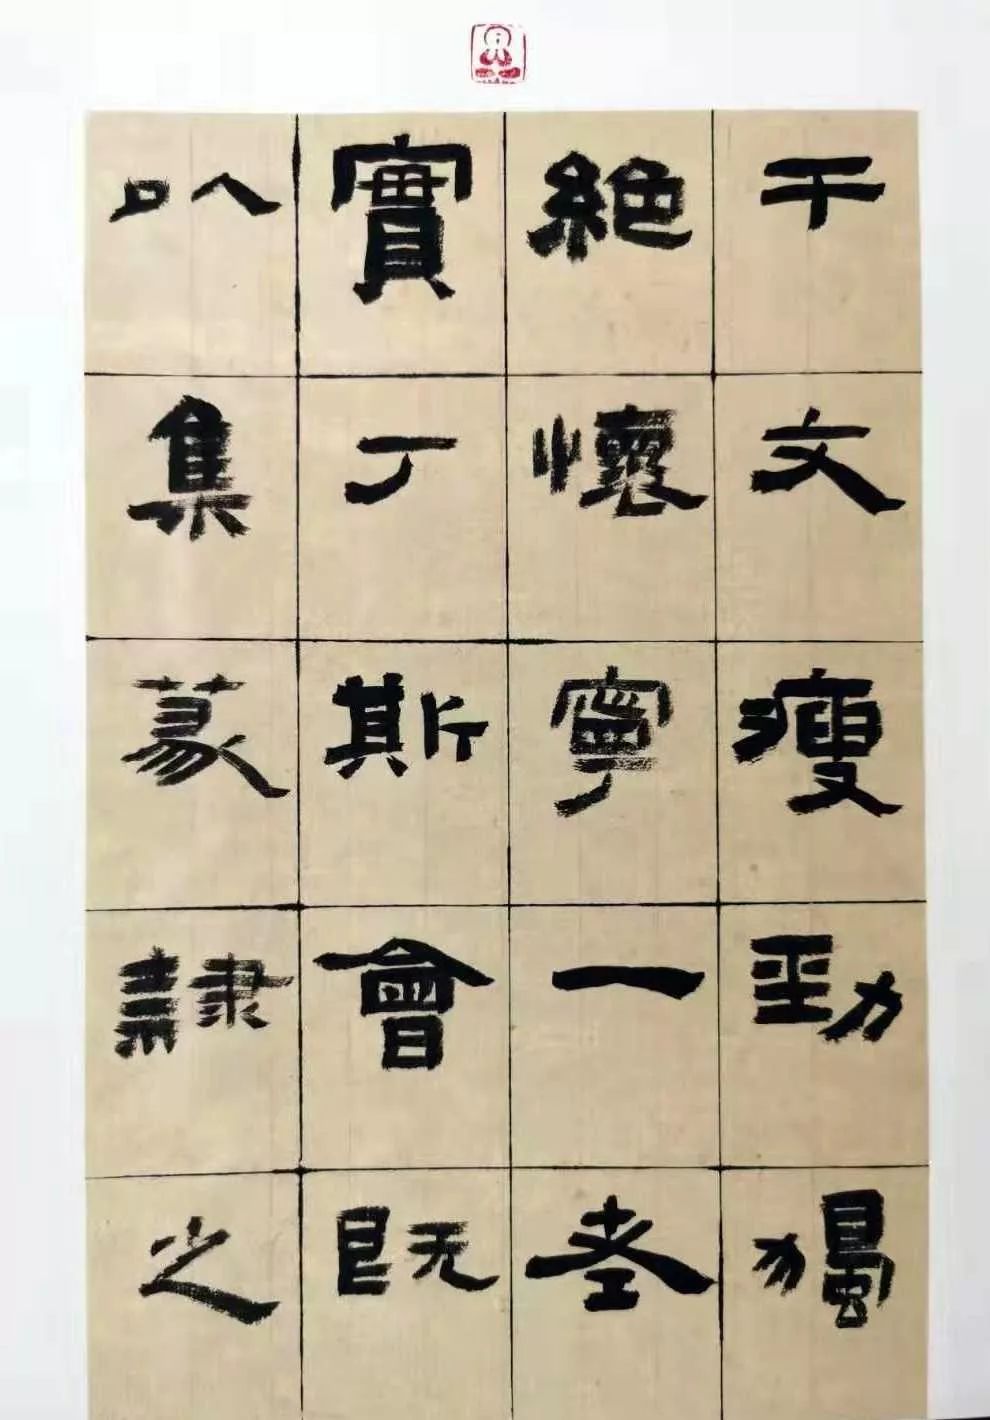 千文瘦勁獨
絕懷寧一老
實丁斯會既
以集篆隸之